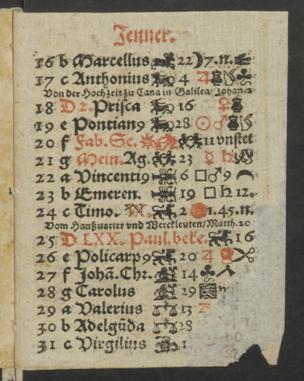 Jenner.
16 b Marcellus 22 7.n.
17 c Anthonius 4
Von der Hochzeit zu Cana in Galilea/Johan.2
18 D 2. Prisca 16
19 e Pontian9 28
20 f Fab. Se. 11 vnstet
21 g Mein. Ag. 23
22 a Vincenti9 6 9
23 b Emeren. 19 12.
24 c Timo. 2 1.45.n.
Vom Haußuatter vnd Werckleuten/Matth.20
25 D LXX. Paul. beke. 16
26 e Policarp9 20 4
27 f Johā. Chr. 14
28 g Carolus 29
29 a Valerius 13
30 b Adelgūda 28
31 c Virgilius 1